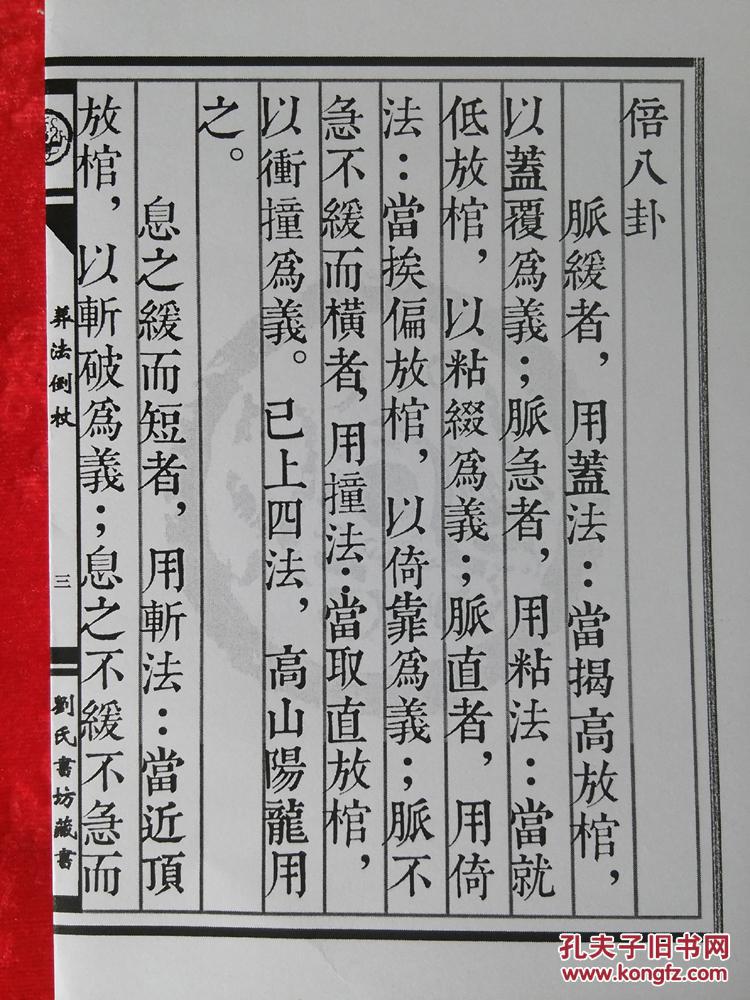 倍八卦
脈緩者，用蓋法：當揭高放棺，
以蓋覆爲義；脈急者，用粘法：當就
低放棺，以粘綴爲義；脈直者，用倚
法：當挨偏放棺，以倚靠爲義；脈不
急不緩而橫者，用撞法：當取直放棺，
以衝撞爲義。已上四法，高山陽龍用
之。
息之緩而短者，用斬法：當近頂
放棺，以斬破爲義；息之不緩不急而
葬法倒杖
三
劉氏書坊藏書
孔夫子旧书网
www.kongfz.com